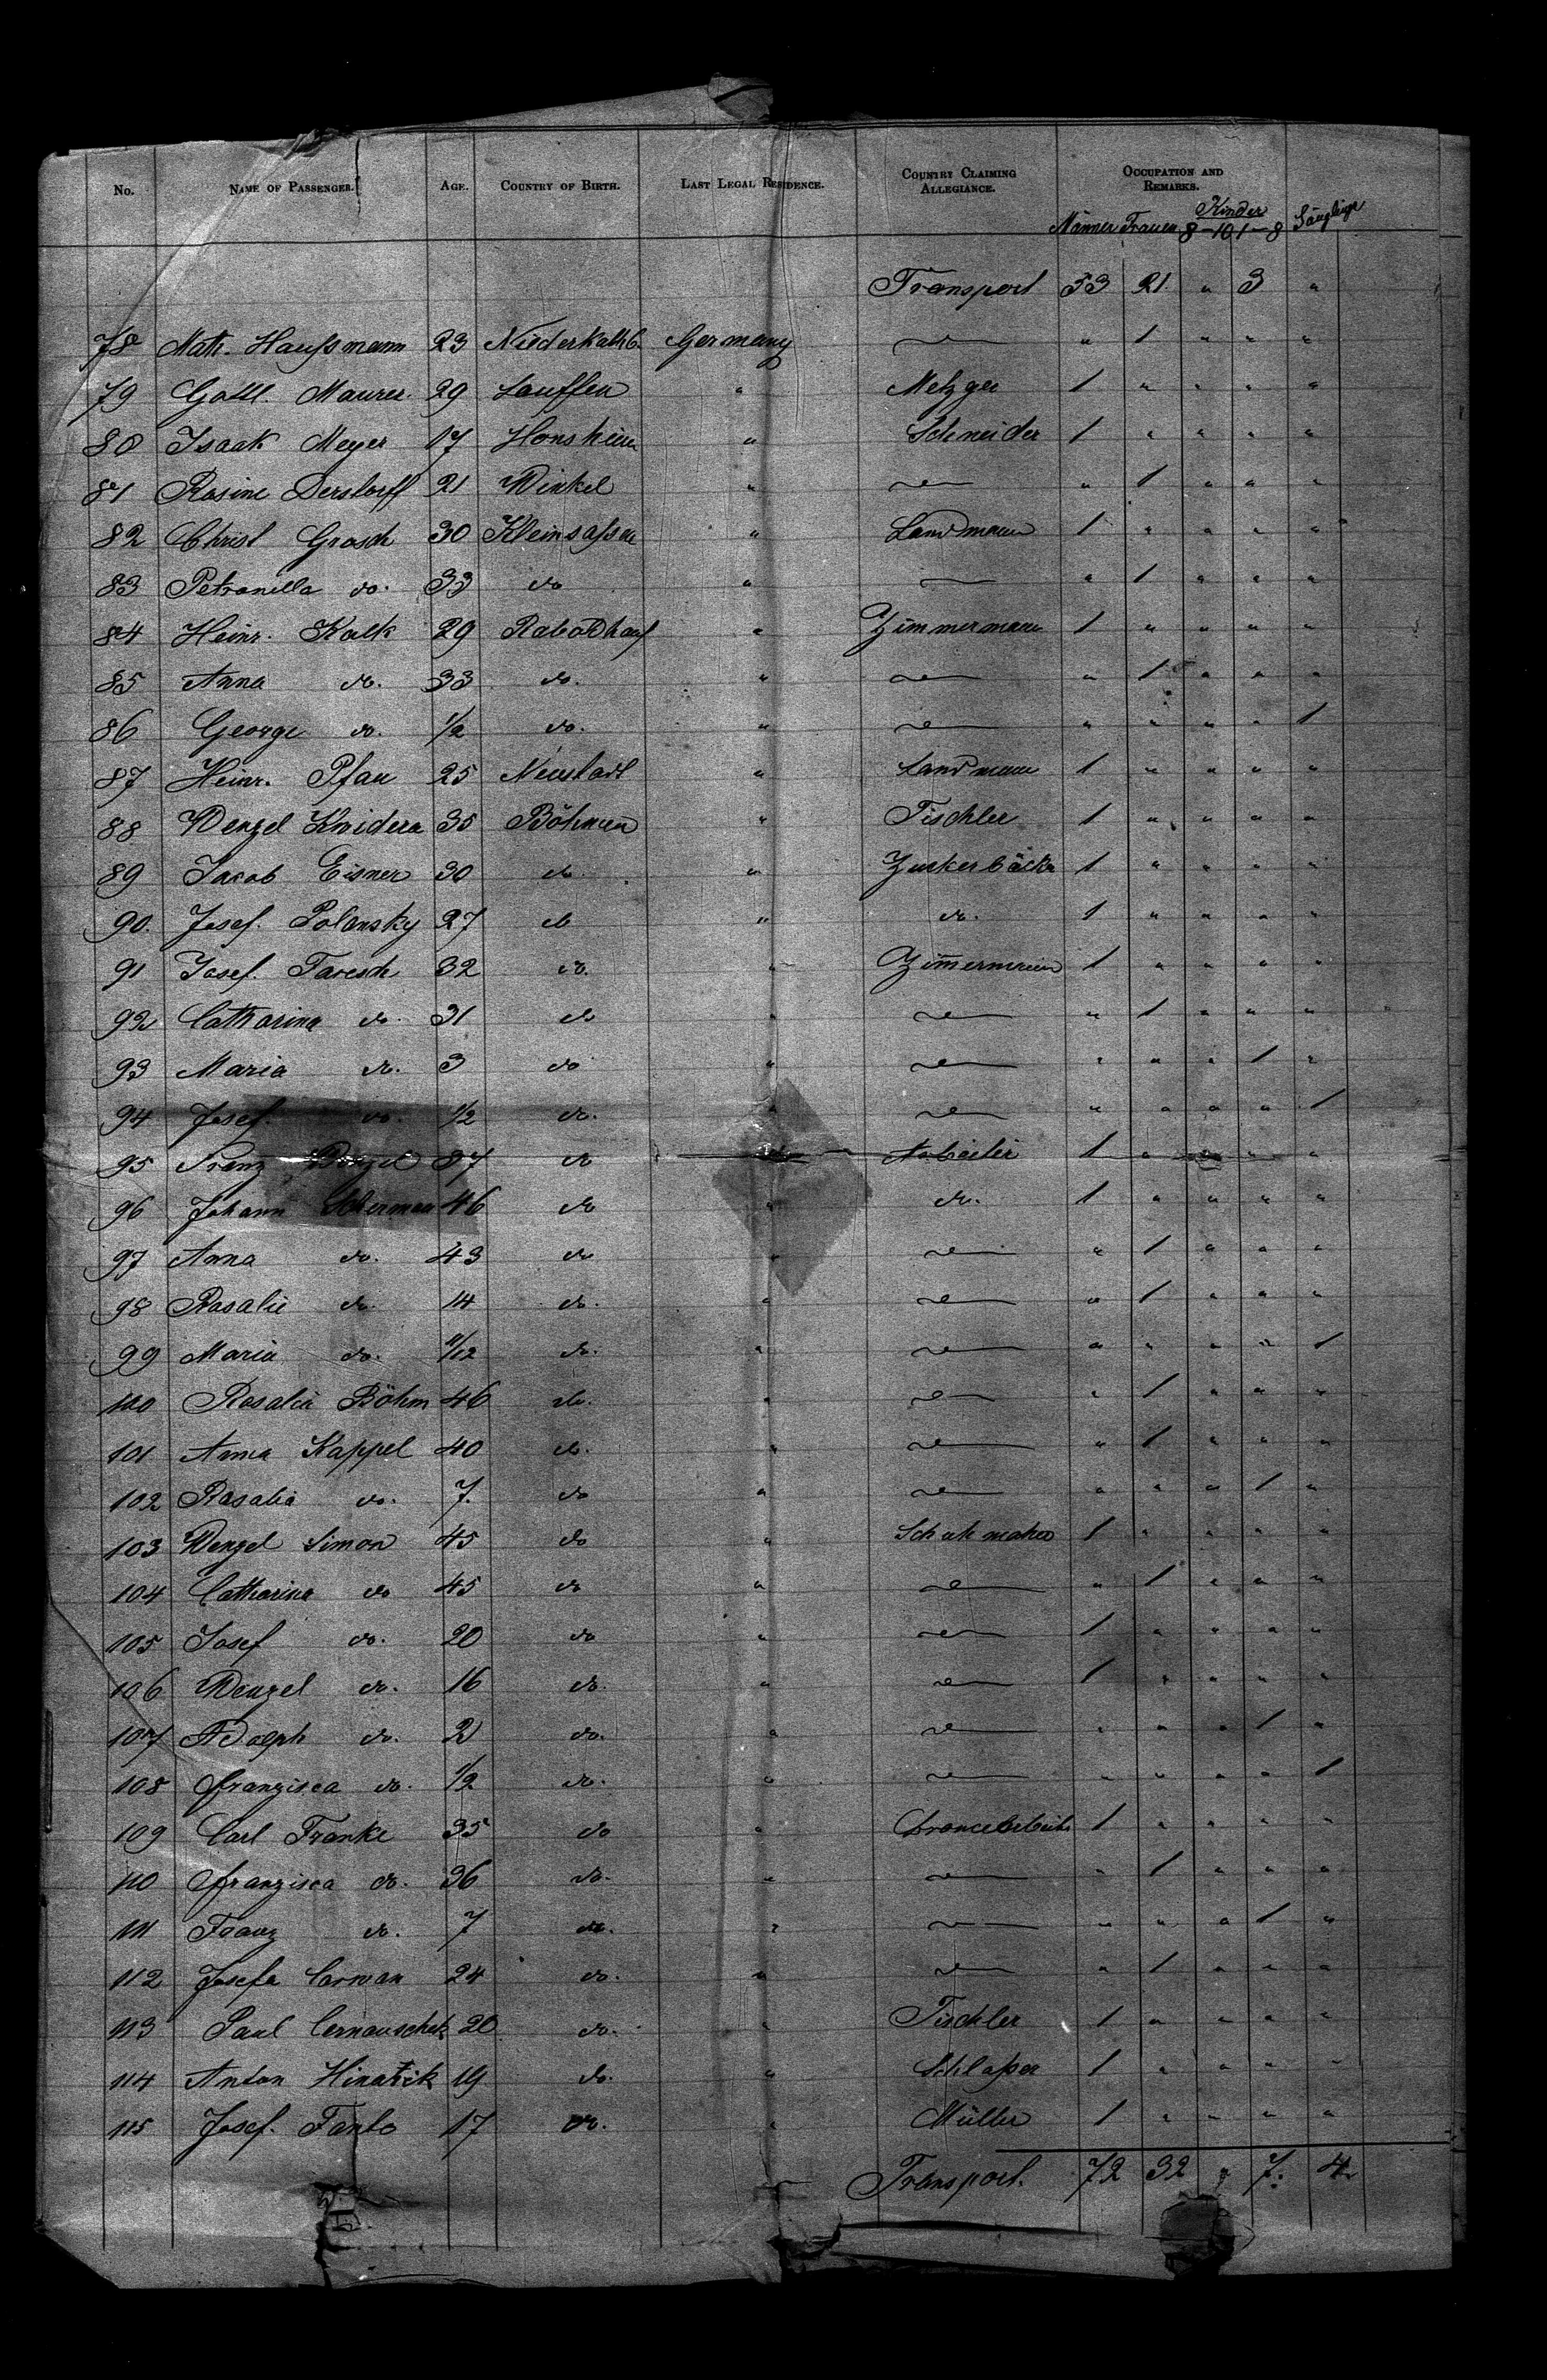 No. NAME OF PASSENGER. AGE. COUNTRY OF BIRTH. LAST LEGAL RESIDENCE. COUNTRY CLAIMING ALLEGIANCE. OCCUPATION AND REMARKS.
Männer Frauen Kinder 8-10 1-8 Säuglinge
Transport 53 21 " 3 "
78 Math. Haußmann 23 Germany — " 1 " " "
79 Gottl. Maurer 29 Lauffen " Metzger 1 " " " "
80 Isaak Meyer 17 Honsheim " Schneider 1 " " " "
81 Rosine Derstorff 21 Winkel " — " 1 " " "
82 Christ Grosch 30 Kleinsassen " Landmann 1 " " " "
83 Petronella do. 33 do " — " 1 " " "
84 Heinr. Kalk 29 " Zimmermann 1 " " " "
85 Anna do. 33 do. " — " 1 " " "
86 George do. 1/2 do. " — " " " " 1
87 Heinr. Pfau 25 Neustadt " Landmann 1 " " " "
88 Wenzel Kwidera 35 Böhmen " Tischler 1 " " " "
89 Jacob Eisner 30 do " Zuckerbäcker 1 " " " "
90. Josef. Polensky 27 do " do. 1 " " " "
91 Josef. Taresch 32 do. " Zim̄ermann 1 " " " "
92 Catharina do. 31 do " — " 1 " " "
93 Maria do. 3 do " — " " " 1 "
94 Josef. do. 1/2 do. " — " " " " 1
95 Franz 37 do " Arbeiter 1 " " " "
96 Johann 46 do " do. 1 " " " "
97 Anna do. 43 do " — " 1 " " "
98 Rosalie do. 14 do. " — " 1 " " "
99 Maria do. 11/12 do. " — " " " " 1
100 Rosalia Böhm 46 do. " — " 1 " " "
101 Anna Kappel 40 do. " — " 1 " " "
102 Rosalia do. 7. do " — " " " 1 "
103 Wenzel Simon 45 do " Schuhmacher 1 " " " "
104 Catharina do 45 do " — " 1 " " "
105 Josef do. 20 do " — 1 " " " "
106 Wenzel do. 16 do. " — 1 " " " "
107 Adolph do. 2 do. " — " " " 1 "
108 Franzisca do. 1/2 do. " — " " " " 1
109 Carl Franke 35 do " 1 " " " "
110 Franzisca do. 36 do. " — " 1 " " "
111 Franz do. 7 do. " — " " " 1 "
112 Josefa Corwan 24 do. " — " 1 " " "
113 Paul Cernauschek 20 do. " Tischler 1 " " " "
114 Anton Hinatik 19 do. " Schlosser 1 " " " "
115 Josef. Fanto 17 do. " Müller 1 " " " "
Transport. 72 32 " 7. 4